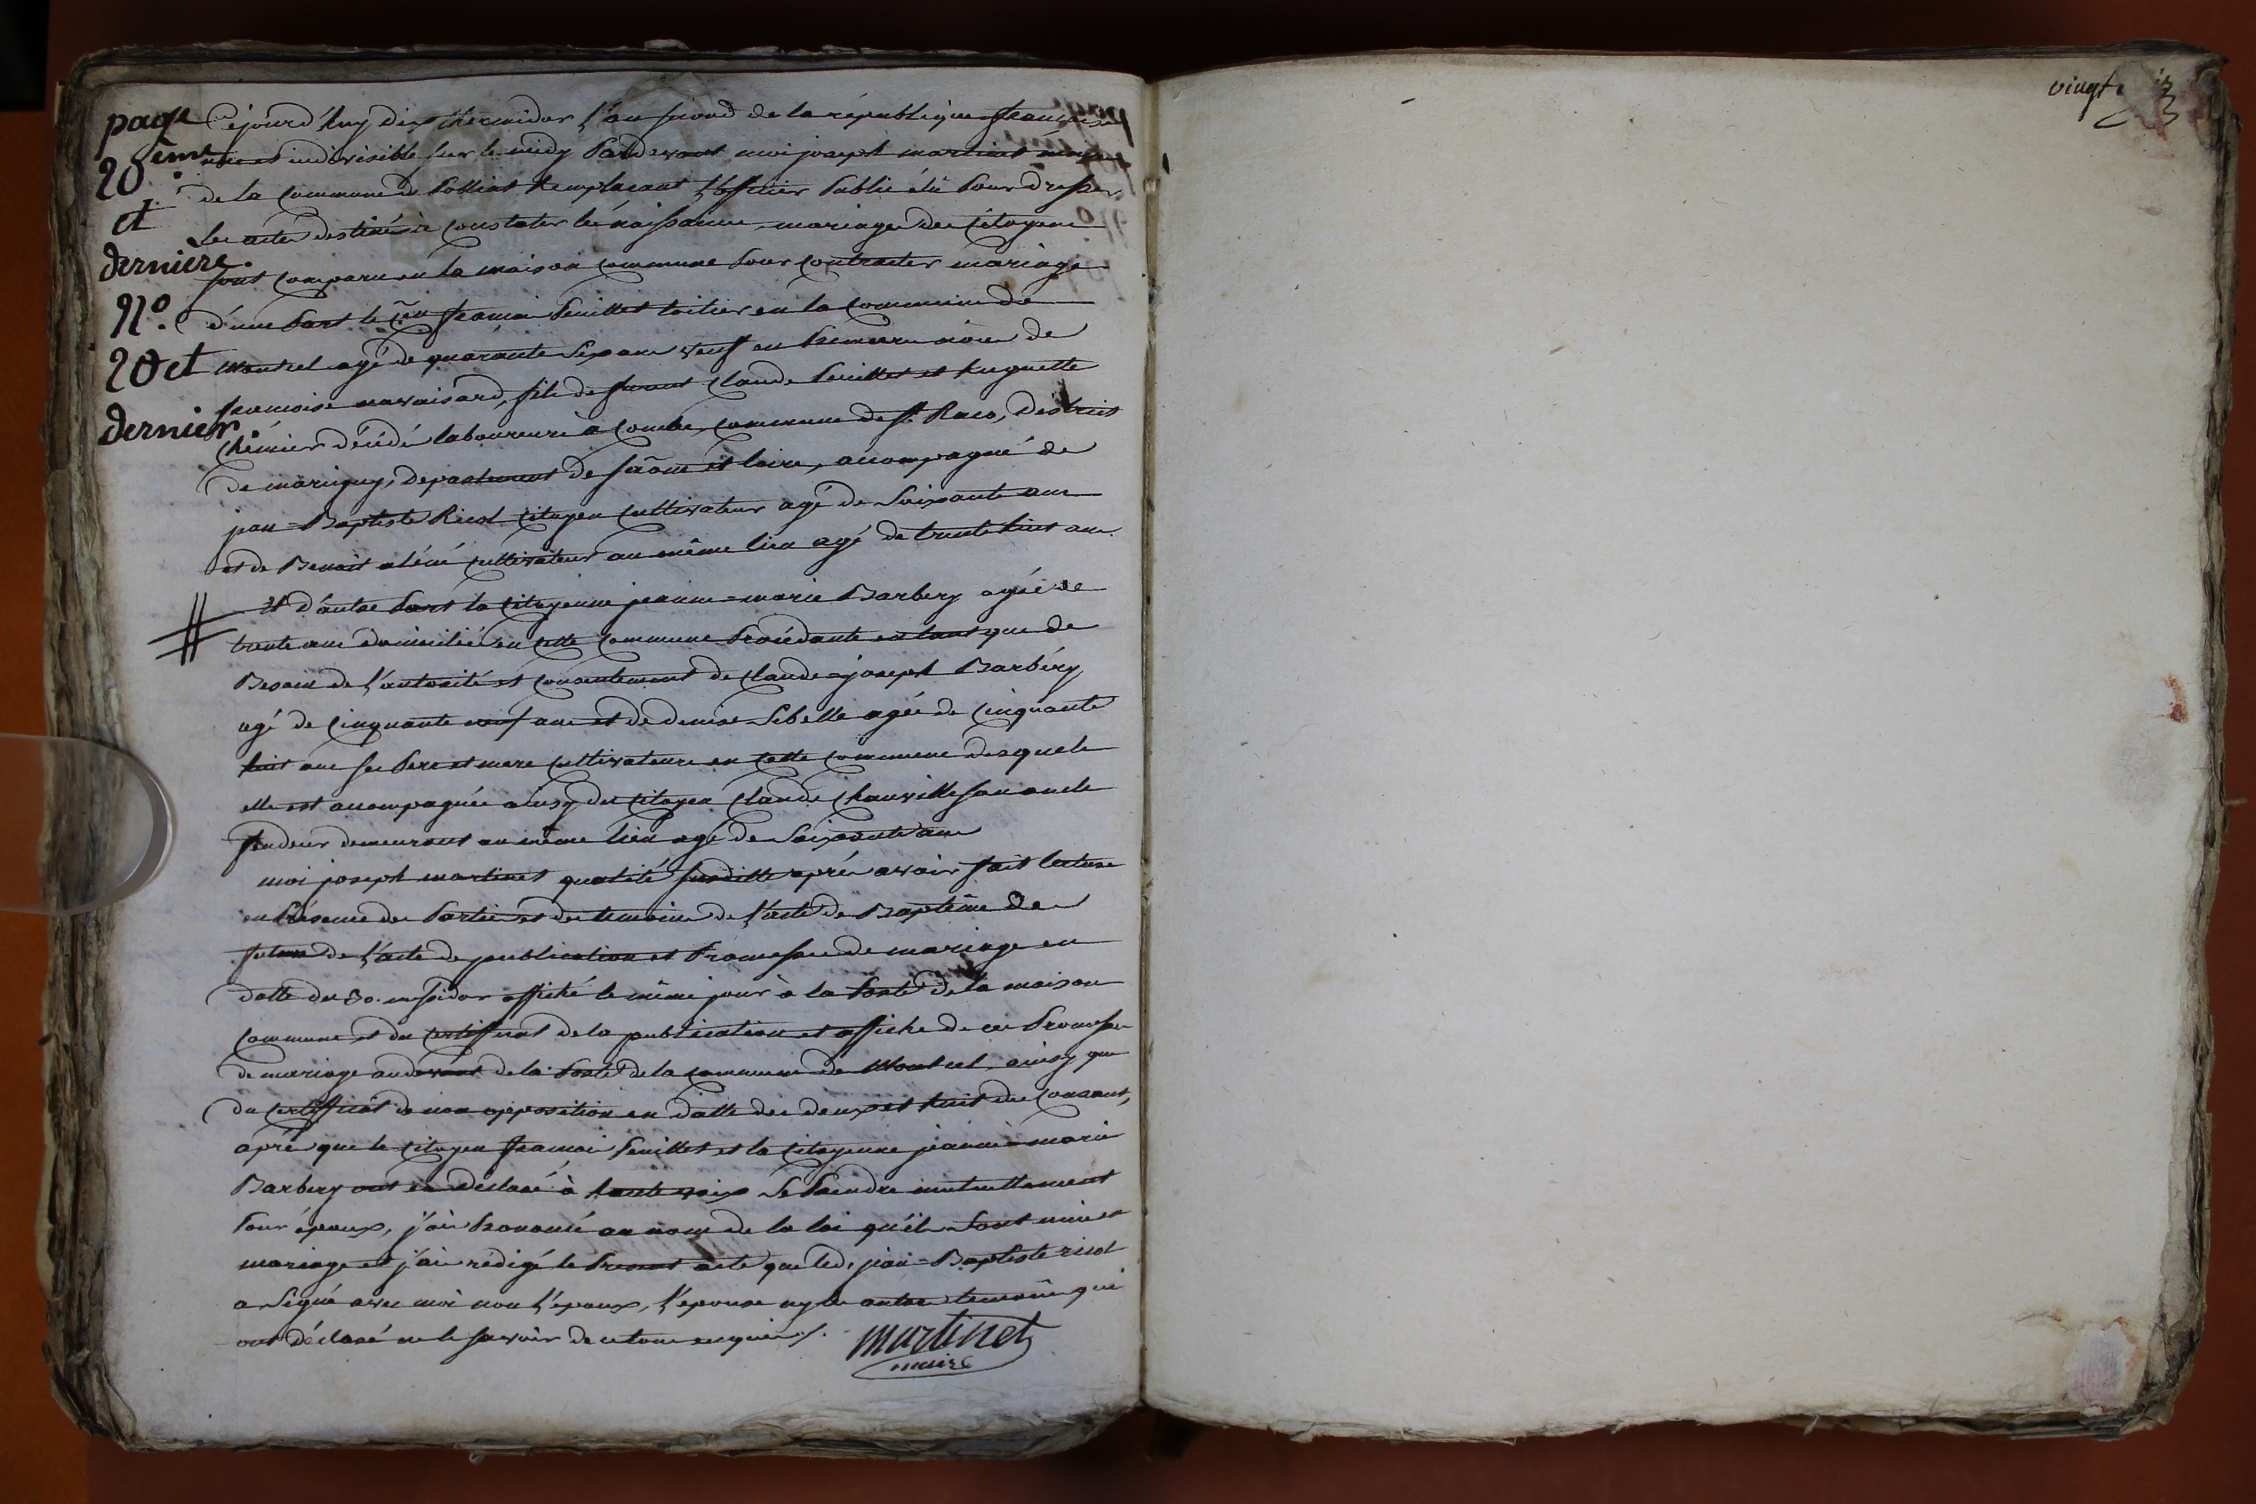 page
20ème
et
dernière.
N°.
20 et
dernier.
Cejourd'huy dix thermidor l'an second de la république française
une et indivisible sur le midy pardevant moi joseph martinet maire
de la commune de Polliat remplacant l'officier public élu pour dresser
les actes destinés à constater les naissances mariages des citoyens
sont comparu en la maison commune pour contracter mariage
d'une part le cen françois Peuillet toitier en la commune de
Montcel agé de quarante six ans veuf en premiere nôces de
françoise mavaisard, fils de furent Claude Peuillet et huguette
Chémier décédé laboureurs à Combe, commune de st Raco, district
de marcigny, departement de sâone et loire, accompagné de
jean=Baptiste Ricol citoyen cultivateur agé de soixante ans
et de Benoit cultivateur au même lieu agé de trente huit ans.
Et d'autre part la citoyenne jeanne=marie Barbery agée de
trente ans domiciliée en cette commune procédante en tant que de
Besoin de l'autorité et consentement de Claude=joseph Barbéry
agé de cinquante neuf ans et de denise Sibelle agée de cinquante
huit ans ses pere et mere cultivateurs en cette commune desquels
elle est accompagnée ainsy du citoyen Claude Chanville son oncle
fendeur demeurant au même lieu agé de soixante ans
moi joseph martinet qualité susditte après avoir fait lecture
en présence des parties et des temoins de l'acte de Baptême des
futurs de l'acte de publication et promesses de mariage en
datte du 30. messidor affiché le même jour à la porte de la maison
commune et du certifficat de la publication et affiche de ces promesses
de mariage audevant de la porte de la commune de Montcel, ainsy que
du certifficat de non opposition en datte des deux et huit du courant,
après que le citoyen françois Peuillet et la citoyenne jeanne=marie
Barbery ont eu déclaré à haute voix se prendre mutuellement
pour époux, j'ai prononcé au nom de la loi qu'ils sont unis en
mariage et j'ai rédigé le present acte que led. jean=Baptiste ricol
a signé avec moi non l'epoux, l'epouse ny les autres temoins qui
ont déclaré ne le savoir de ce tous enquis /.
martinet
maire
vingt